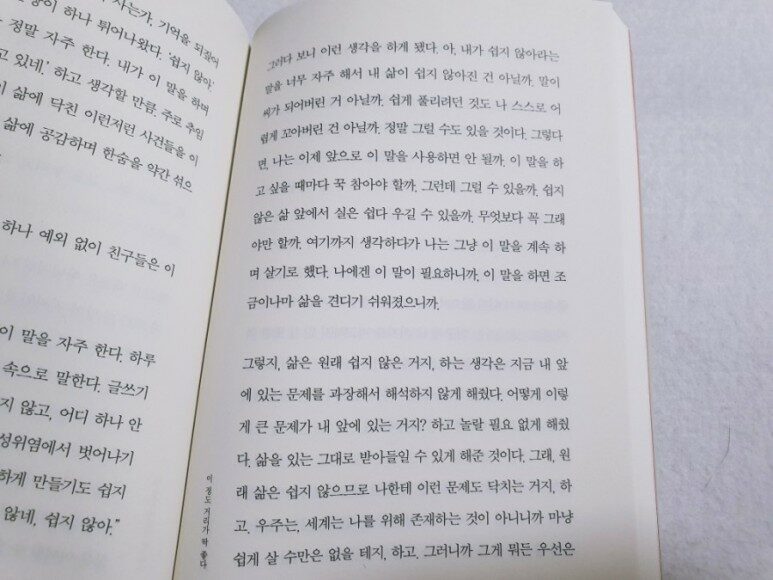 사는가, 기억을 되짚어
하나 튀어나왔다. '쉽지 않아.'
정말 자주 한다. 내가 이 말을 하며
고 있네.' 하고 생각할 만큼. 주로 추임
이 삶에 닥친 이런저런 사건들을 이
삶에 공감하며 한숨을 약간 섞으
하나 예외 없이 친구들은 이
이 말을 자주 한다. 하루
속으로 말한다. 글쓰기
지 않고, 어디 하나 안
성위염에서 벗어나기
하게 만들기도 쉽지
않네, 쉽지 않아."
이 정도 거리가 딱 좋다
그러다 보니 이런 생각을 하게 됐다. 아, 내가 쉽지 않아라는
말을 너무 자주 해서 내 삶이 쉽지 않아진 건 아닐까. 말이
씨가 되어버린 거 아닐까. 쉽게 풀리려던 것도 나 스스로 어
렵게 꼬아버린 건 아닐까. 정말 그럴 수도 있을 것이다. 그렇다
면, 나는 이제 앞으로 이 말을 사용하면 안 될까. 이 말을 하
고 싶을 때마다 꾹 참아야 할까. 그런데 그럴 수 있을까. 쉽지
않은 삶 앞에서 실은 쉽다 우길 수 있을까. 무엇보다 꼭 그래
야만 할까. 여기까지 생각하다가 나는 그냥 이 말을 계속 하
며 살기로 했다. 나에겐 이 말이 필요하니까. 이 말을 하면 조
금이나마 삶을 견디기 쉬워졌으니까.
그렇지, 삶은 원래 쉽지 않은 거지, 하는 생각은 지금 내 앞
에 있는 문제를 과장해서 해석하지 않게 해줬다. 어떻게 이렇
게 큰 문제가 내 앞에 있는 거지? 하고 놀랄 필요 없게 해줬
다. 삶을 있는 그대로 받아들일 수 있게 해준 것이다. 그래, 원
래 삶은 쉽지 않으므로 나한테 이런 문제도 닥치는 거지, 하
고. 우주는, 세계는 나를 위해 존재하는 것이 아니니까 마냥
쉽게 살 수만은 없을 테지, 하고. 그러니까 그게 뭐든 우선은